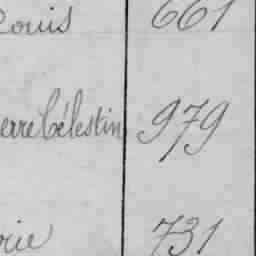 Louis 661
erre Célestin 979
rie 731